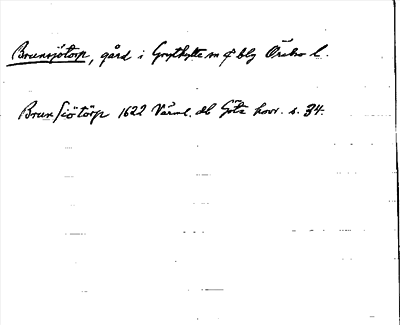 Brunsjötorp, gård i Grythytte sn o blg Örebro l.
Brun Siötörp 1622 Värml. db Göta hovr. s. 34.